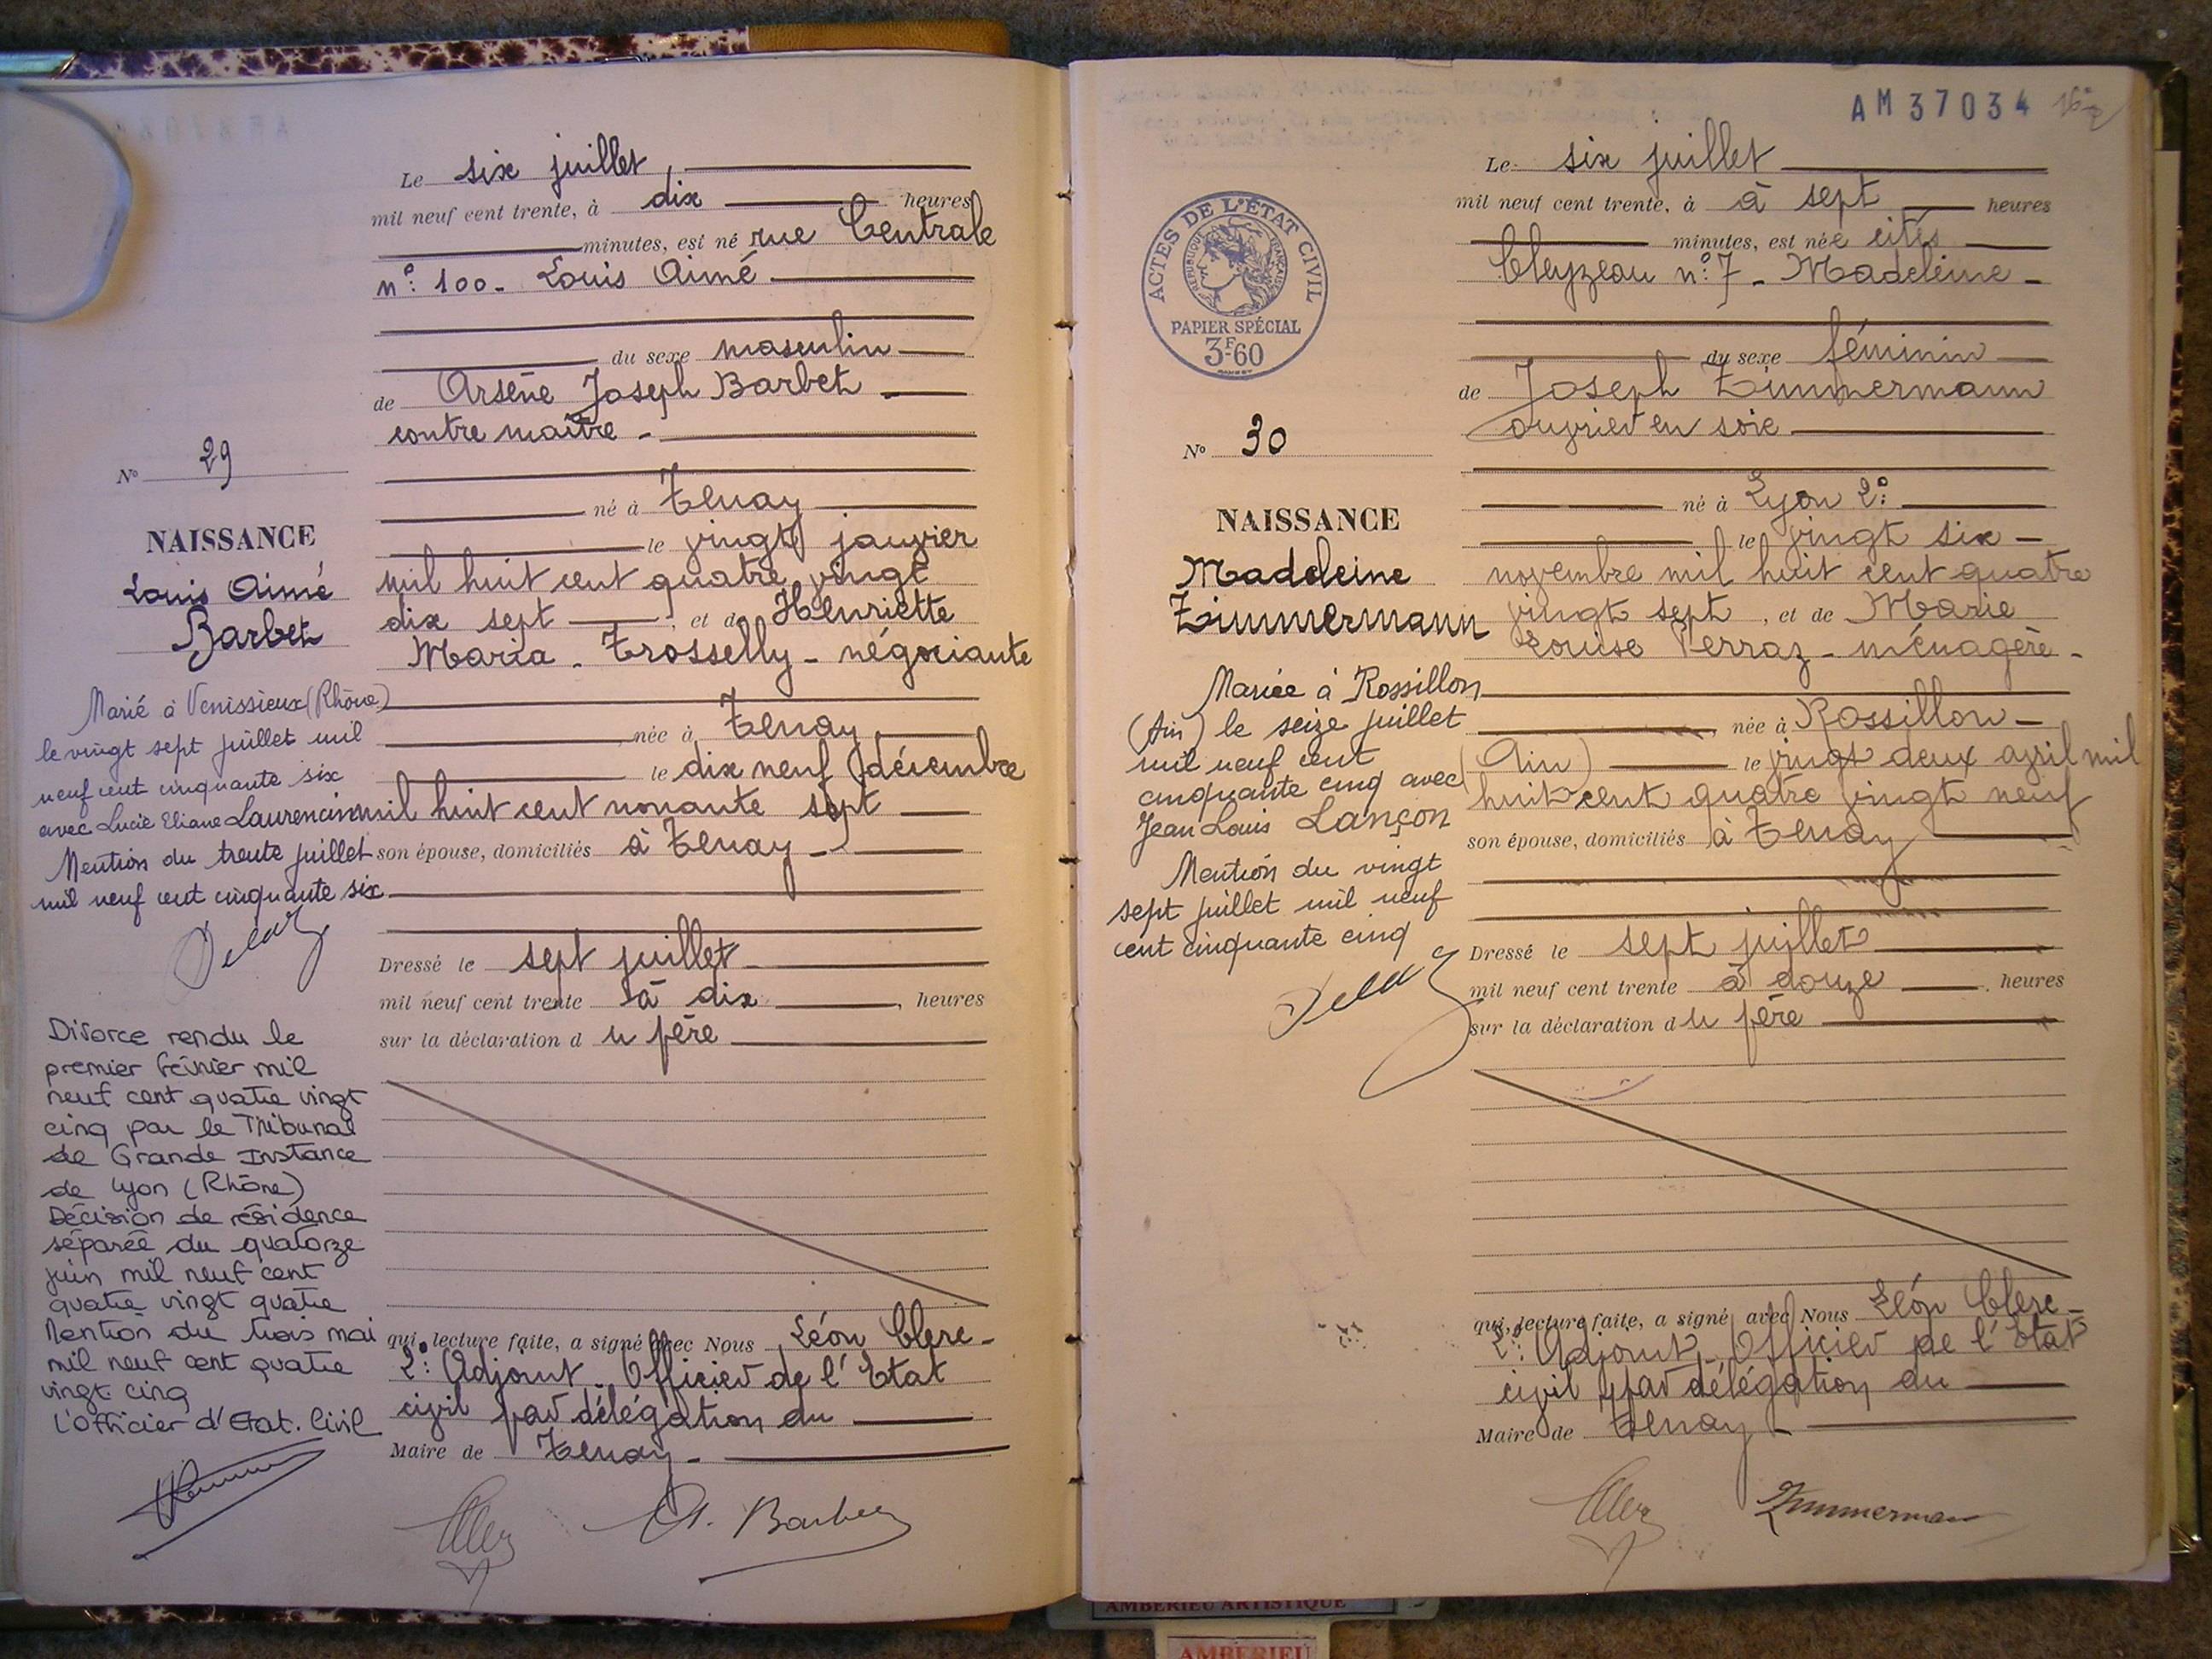 Le six juillet,
mil neuf cent trente, à dix heures
minutes, est né rue Centrale
n°: 100 - Louis Aimé
du sexe masculin
de Arsène Joseph Barbet -
contre maître -
N° 29
né à Tenay
NAISSANCE
le vingt janvier
Louis Aimé
mil huit cent quatre vingt
Barbet
dix sept, et de Henriette
Maria - Trosselly - négociante
Marié à Venissieux (Rhône)
le vingt sept juillet mil
neuf cent cinquante six
avec Lucie Eliane Laurencin
Mention du trente juillet
mil neuf cent cinquante six
née à Tenay
le dix neuf décembre
mil huit cent nonante sept
son épouse, domiciliés à Tenay -
Dressé le sept juillet
mil neuf cent trente à dix, heures
sur la déclaration du père
Divorce rendu le
premier février mil
neuf cent quatre vingt
cinq par le Tribunal
de Grande Instance
de Lyon (Rhône)
Décision de résidence
séparée du quatorze
juin mil neuf cent
quatre vingt quatre
Mention du trois mai
mil neuf cent quatre
vingt cinq
L'officier d'Etat. Civil
qui, lecture faite, a signé avec Nous Léon Clerc -
2°: Adjoint - Officier de l'Etat
civil par délégation du
Maire de Tenay -
A. Barbet
AM 37034
Le six juillet
mil neuf cent trente, à à sept heures
minutes, est née cités
Cleyzeau n°: 7 - Madeleine -
ACTES DE L'ÉTAT CIVIL
RÉPUBLIQUE FRANÇAISE
PAPIER SPÉCIAL
3F60
du sexe féminin
de Joseph Zimmermann
ouvrier en soie
N° 30
né à Lyon 2°:
NAISSANCE
le vingt six -
Madeleine
novembre mil huit cent quatre
Zimmermann
vingt sept, et de Marie
Louise Perraz - ménagère -
Mariée à Rossillon
(Ain) le seize juillet
mil neuf cent
cinquante cinq avec
Jean Louis Lançon
Mention du vingt
sept juillet mil neuf
cent cinquante cinq
née à Rossillon -
(Ain) le vingt deux avril mil
huit cent quatre vingt neuf
son épouse, domiciliés à Tenay
Dressé le sept juillet
mil neuf cent trente à douze, heures
sur la déclaration du père
qui, lecture faite, a signé avec Nous Léon Clerc -
2°: Adjoint - Officier de l'Etat
civil par délégation du
Maire de Tenay -
Zimmerman
AMBERIEU ARTISTIQUE
AMBERIEU